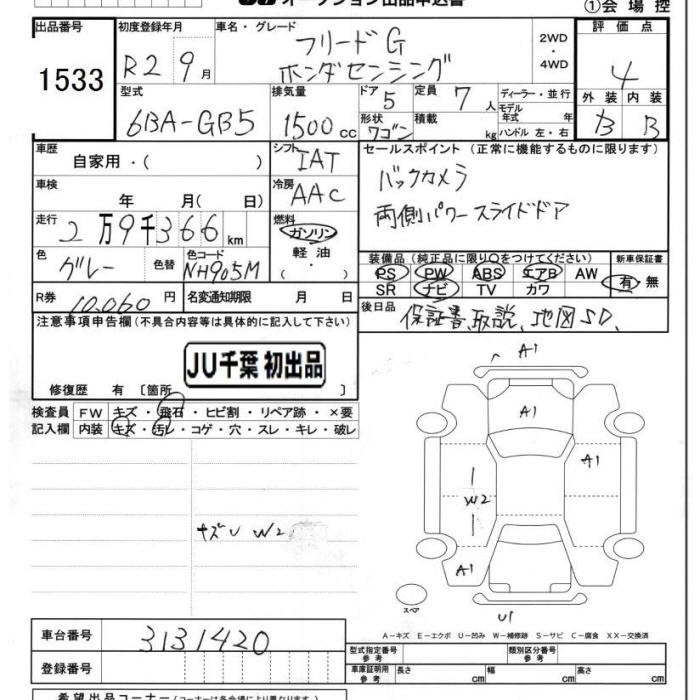 オークション出品申込書
①会場控
出品番号 初度登録年月 車名・グレード 評価点
1533 R2 9月 フリードG 2WD・4WD 4
ホンダセンシング
型式 排気量 ドア 5 定員 7人 ディーラー・並行 外装 内装
6BA-GB5 1500cc 形状 ワゴン 積載 kg モデル年式 年 B B
ハンドル 左・右
車歴 自家用・( ) シフト IAT セールスポイント (正常に機能するものに限ります)
車検 年 月(日) 冷房 AAC バックカメラ
走行 2万9千366km 燃料 ガソリン 両側パワースライドドア
軽油
色 グレー 色替 色コード NH905M 装備品(純正品に限り〇をつけてください) 新車保証書
PS PW ABS エアB AW 有・無
SR ナビ TV カワ
R券 10,060円 名変通知期限 月 日 後日品 保証書、取説、地図SD、
注意事項申告欄(不具合内容等は具体的に記入して下さい)
JU千葉 初出品
修復歴 有〔箇所 〕
検査員 FW キズ・飛石・ヒビ割・リペア跡・×要
記入欄 内装 キズ・汚レ・コゲ・穴・スレ・キレ・破レ
A1
A1
A1
W2
A1
U1
W2
スペア
A-キズ E-エクボ U-凹み W-補修跡 S-サビ C-腐食 XX-交換済
車台番号 3131420 型式指定番号 参考 類別区分番号 参考
登録番号 車庫証明用 参考 長さ cm 幅 cm 高さ cm
希望出品コーナー(コーナーは各会場により異なります)